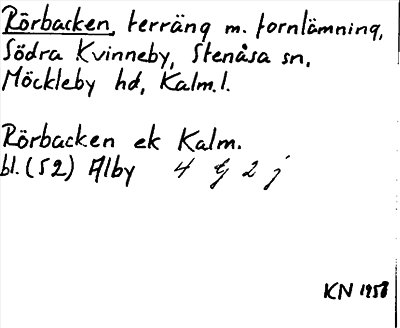 Rörbacken, terräng m. fornlämning,
Södra Kvinneby, Stenåsa sn,
Möckleby hd, Kalm. l.
Rörbacken ek Kalm.
bl. (52) Alby 4 G 2 j
KN 1958